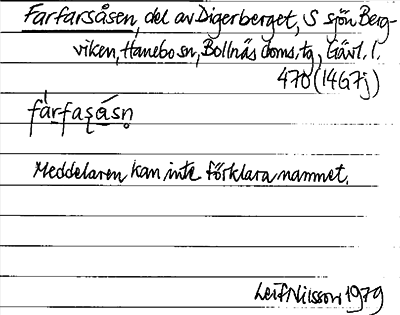 Farfarsåsen, del av Digerberget, S sjön Berg-
viken, Hanebo sn, Bollnäs doms.tg, Gävl. l.
470 (14G7j)
fàrfaşásn̥
Meddelaren kan inte förklara namnet.
Leif Nilsson 1979